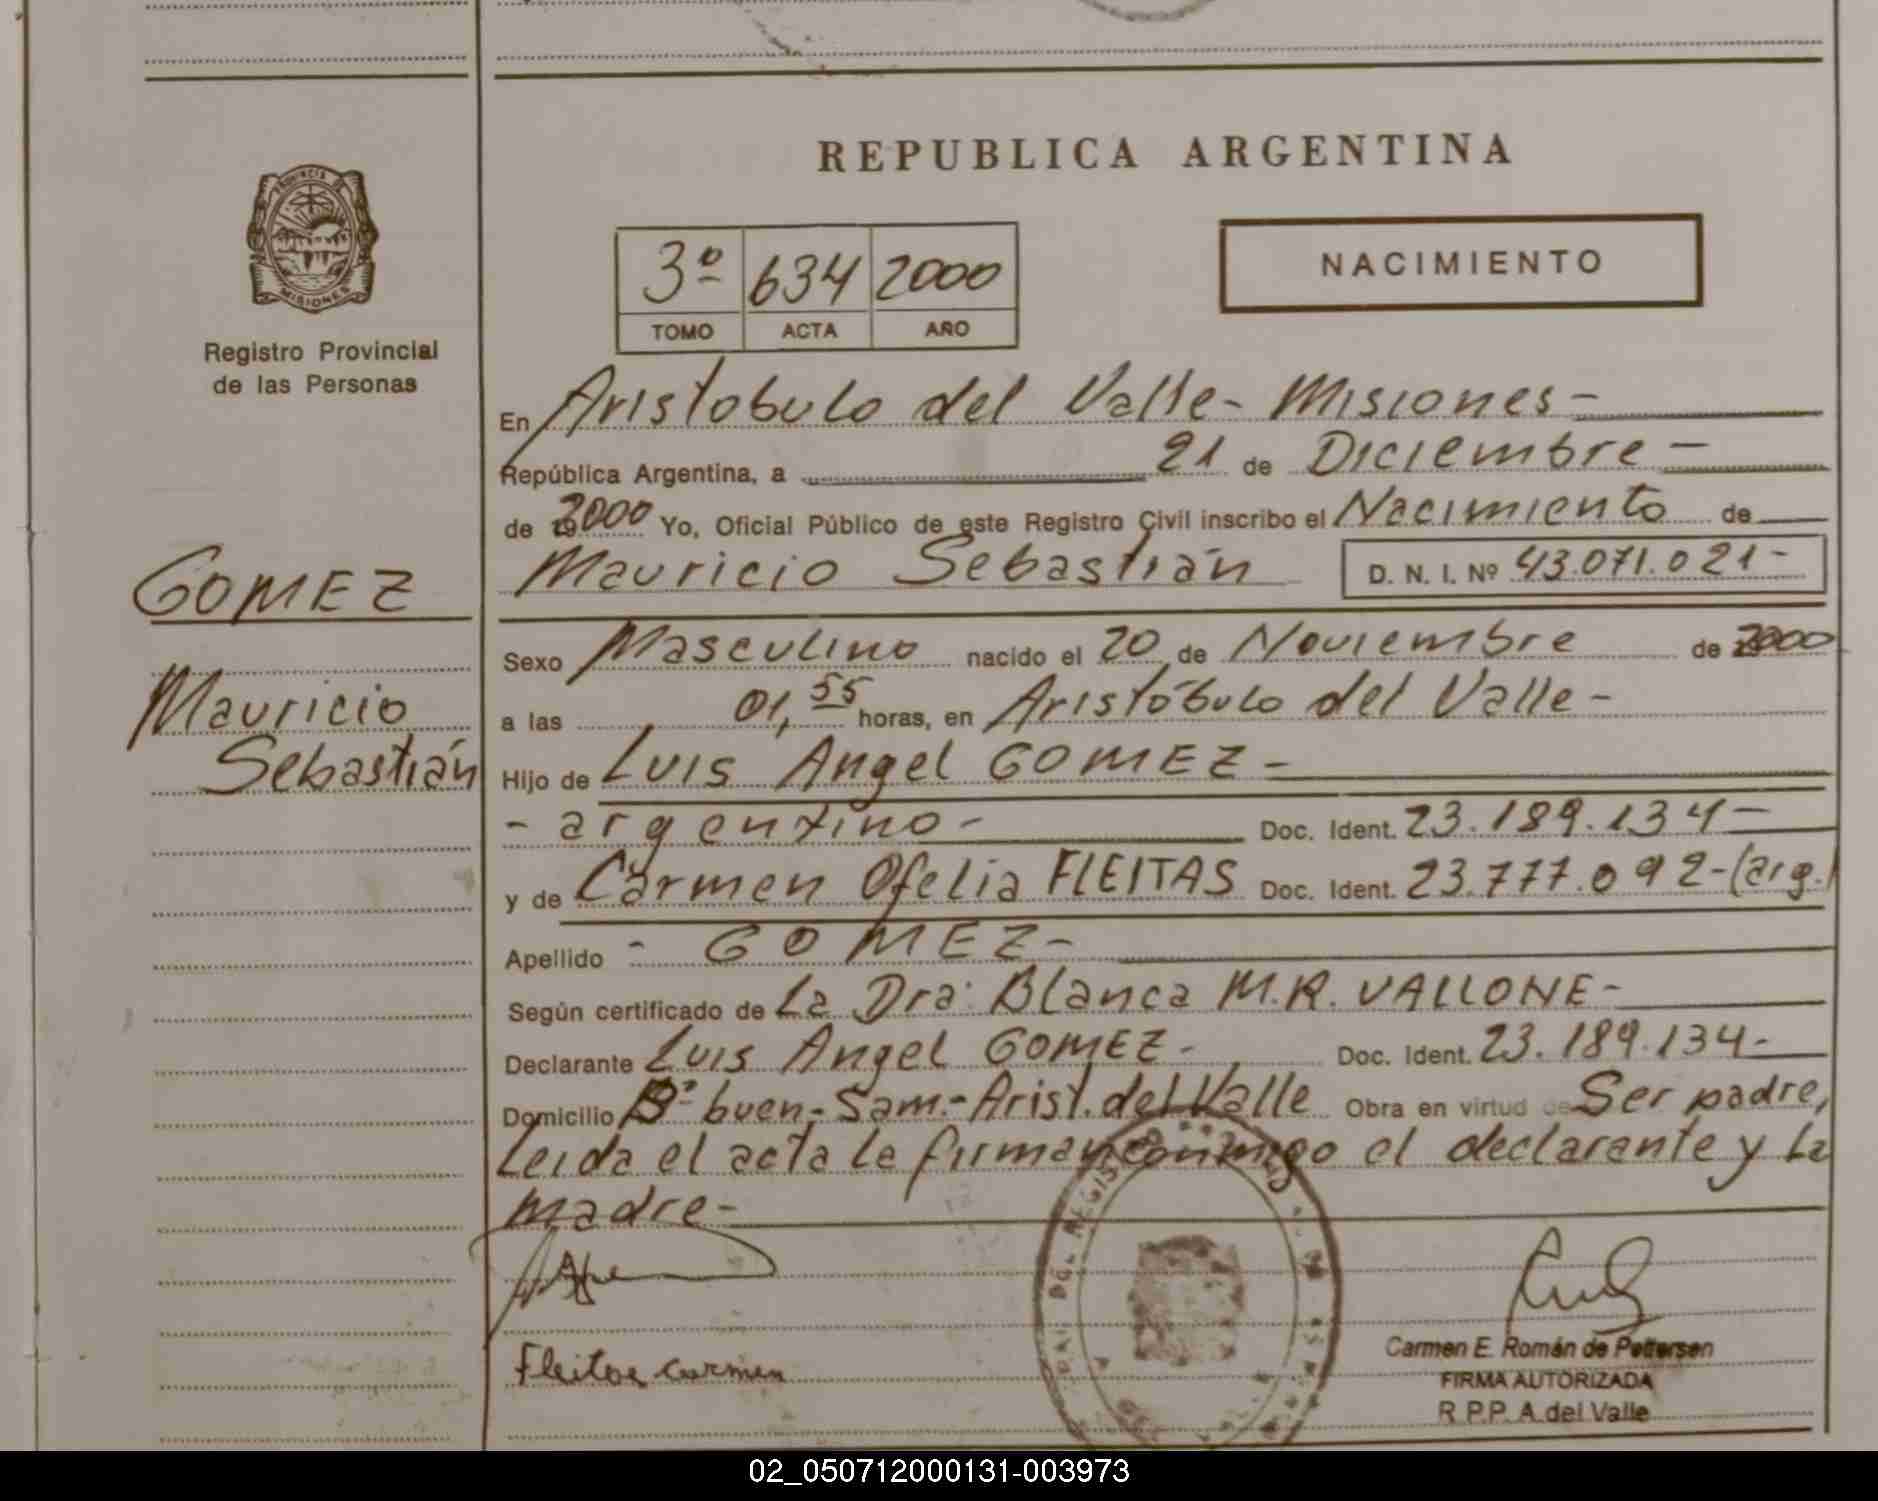 REPUBLICA ARGENTINA
PROVINCIA DE
MISIONES
Registro Provincial
de las Personas
3º 634 2000
TOMO ACTA AÑO
NACIMIENTO
En Aristobulo del Valle - Misiones -
República Argentina, a 21 de Diciembre -
de 2000 Yo, Oficial Público de este Registro Civil inscribo el Nacimiento de
Mauricio Sebastián D. N. I. Nº 43.071.021 -
GOMEZ
Mauricio
Sebastián
Sexo Masculino nacido el 20 de Noviembre de 2000
a las 01,55 horas, en Aristóbulo del Valle -
Hijo de Luis Angel GOMEZ -
- argentino - Doc. Ident. 23.189.134 -
y de Carmen Ofelia FLEITAS Doc. Ident. 23.777.092 - (arg.)
Apellido - GOMEZ -
Según certificado de La Dra. Blanca M.R. VALLONE -
Declarante Luis Angel GOMEZ - Doc. Ident. 23.189.134 -
Domicilio Bº buen - Sam. - Arist. del Valle Obra en virtud de Ser padre,
Leida el acta la firman conmigo el declarante y La
madre -
Fleitas Carmen
Carmen E. Román de Pettersen
FIRMA AUTORIZADA
R.P.P. A. del Valle
02_050712000131-003973